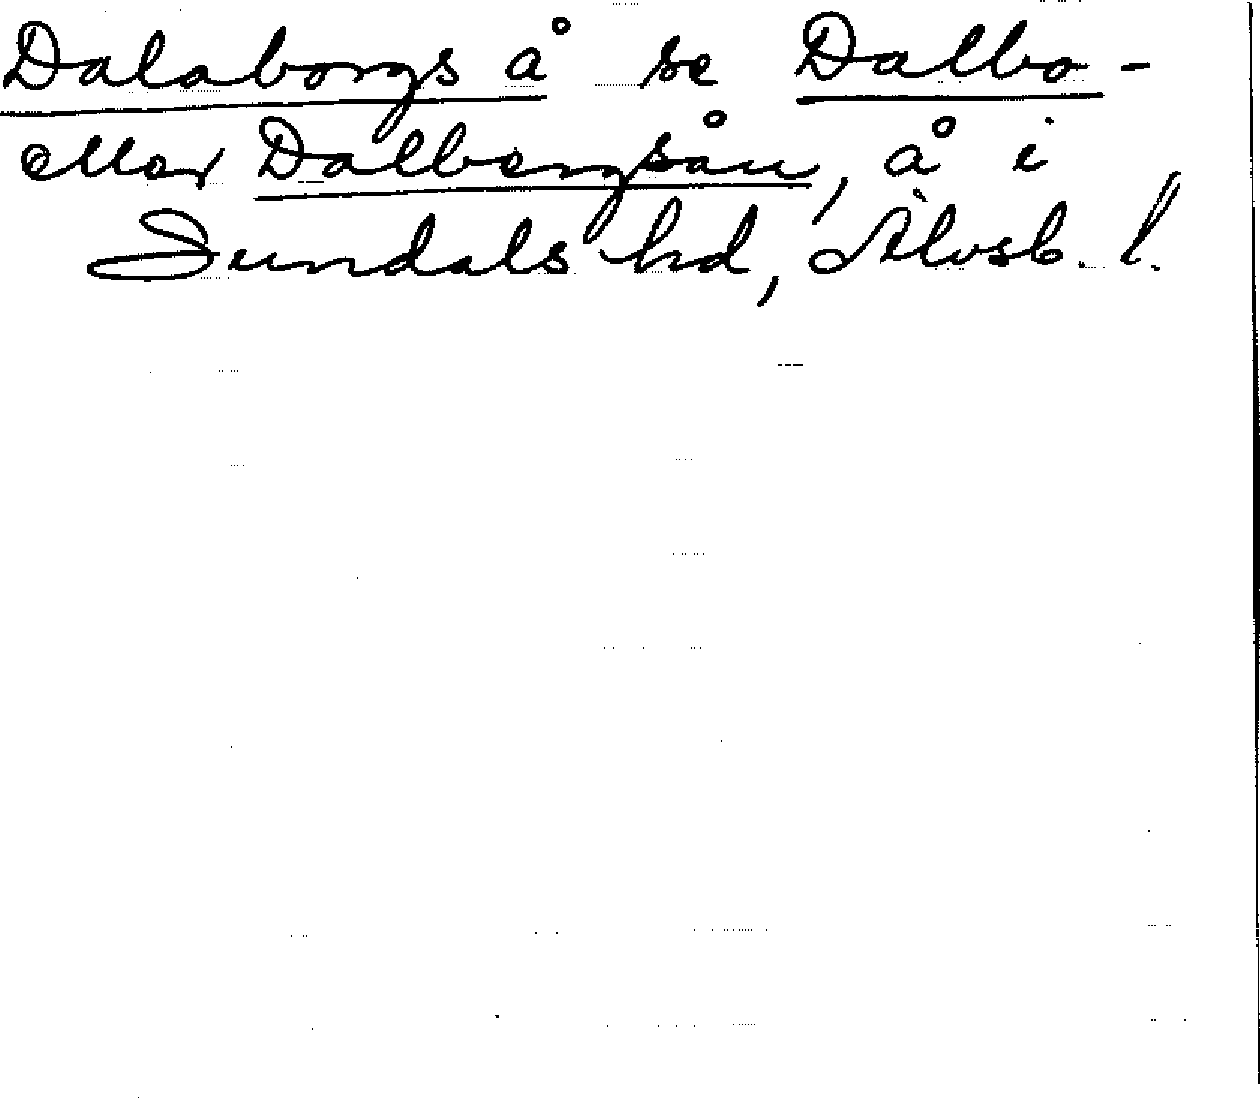 Dalaborgs å se Dalbo-
eller Dalbergsån, å i
Sundals hd, Älvsb. l.